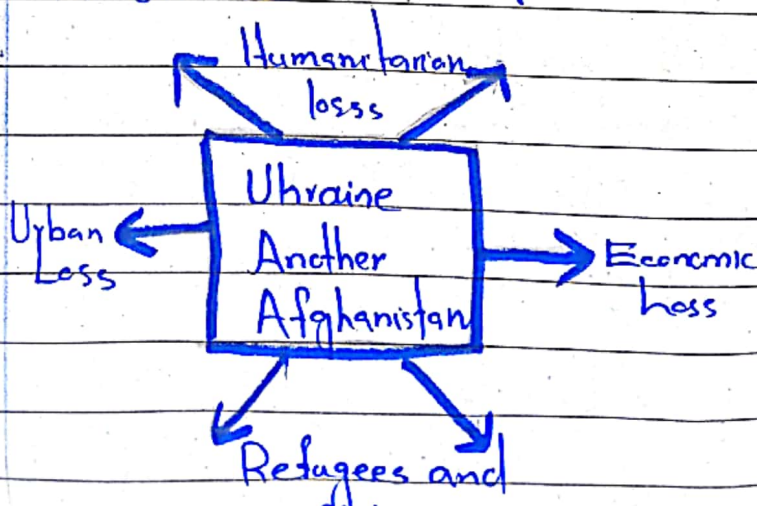 Humanitarian
losss
Ukraine
Another
Afghanistan
Urban
Loss
Economic
Loss
Refugees and